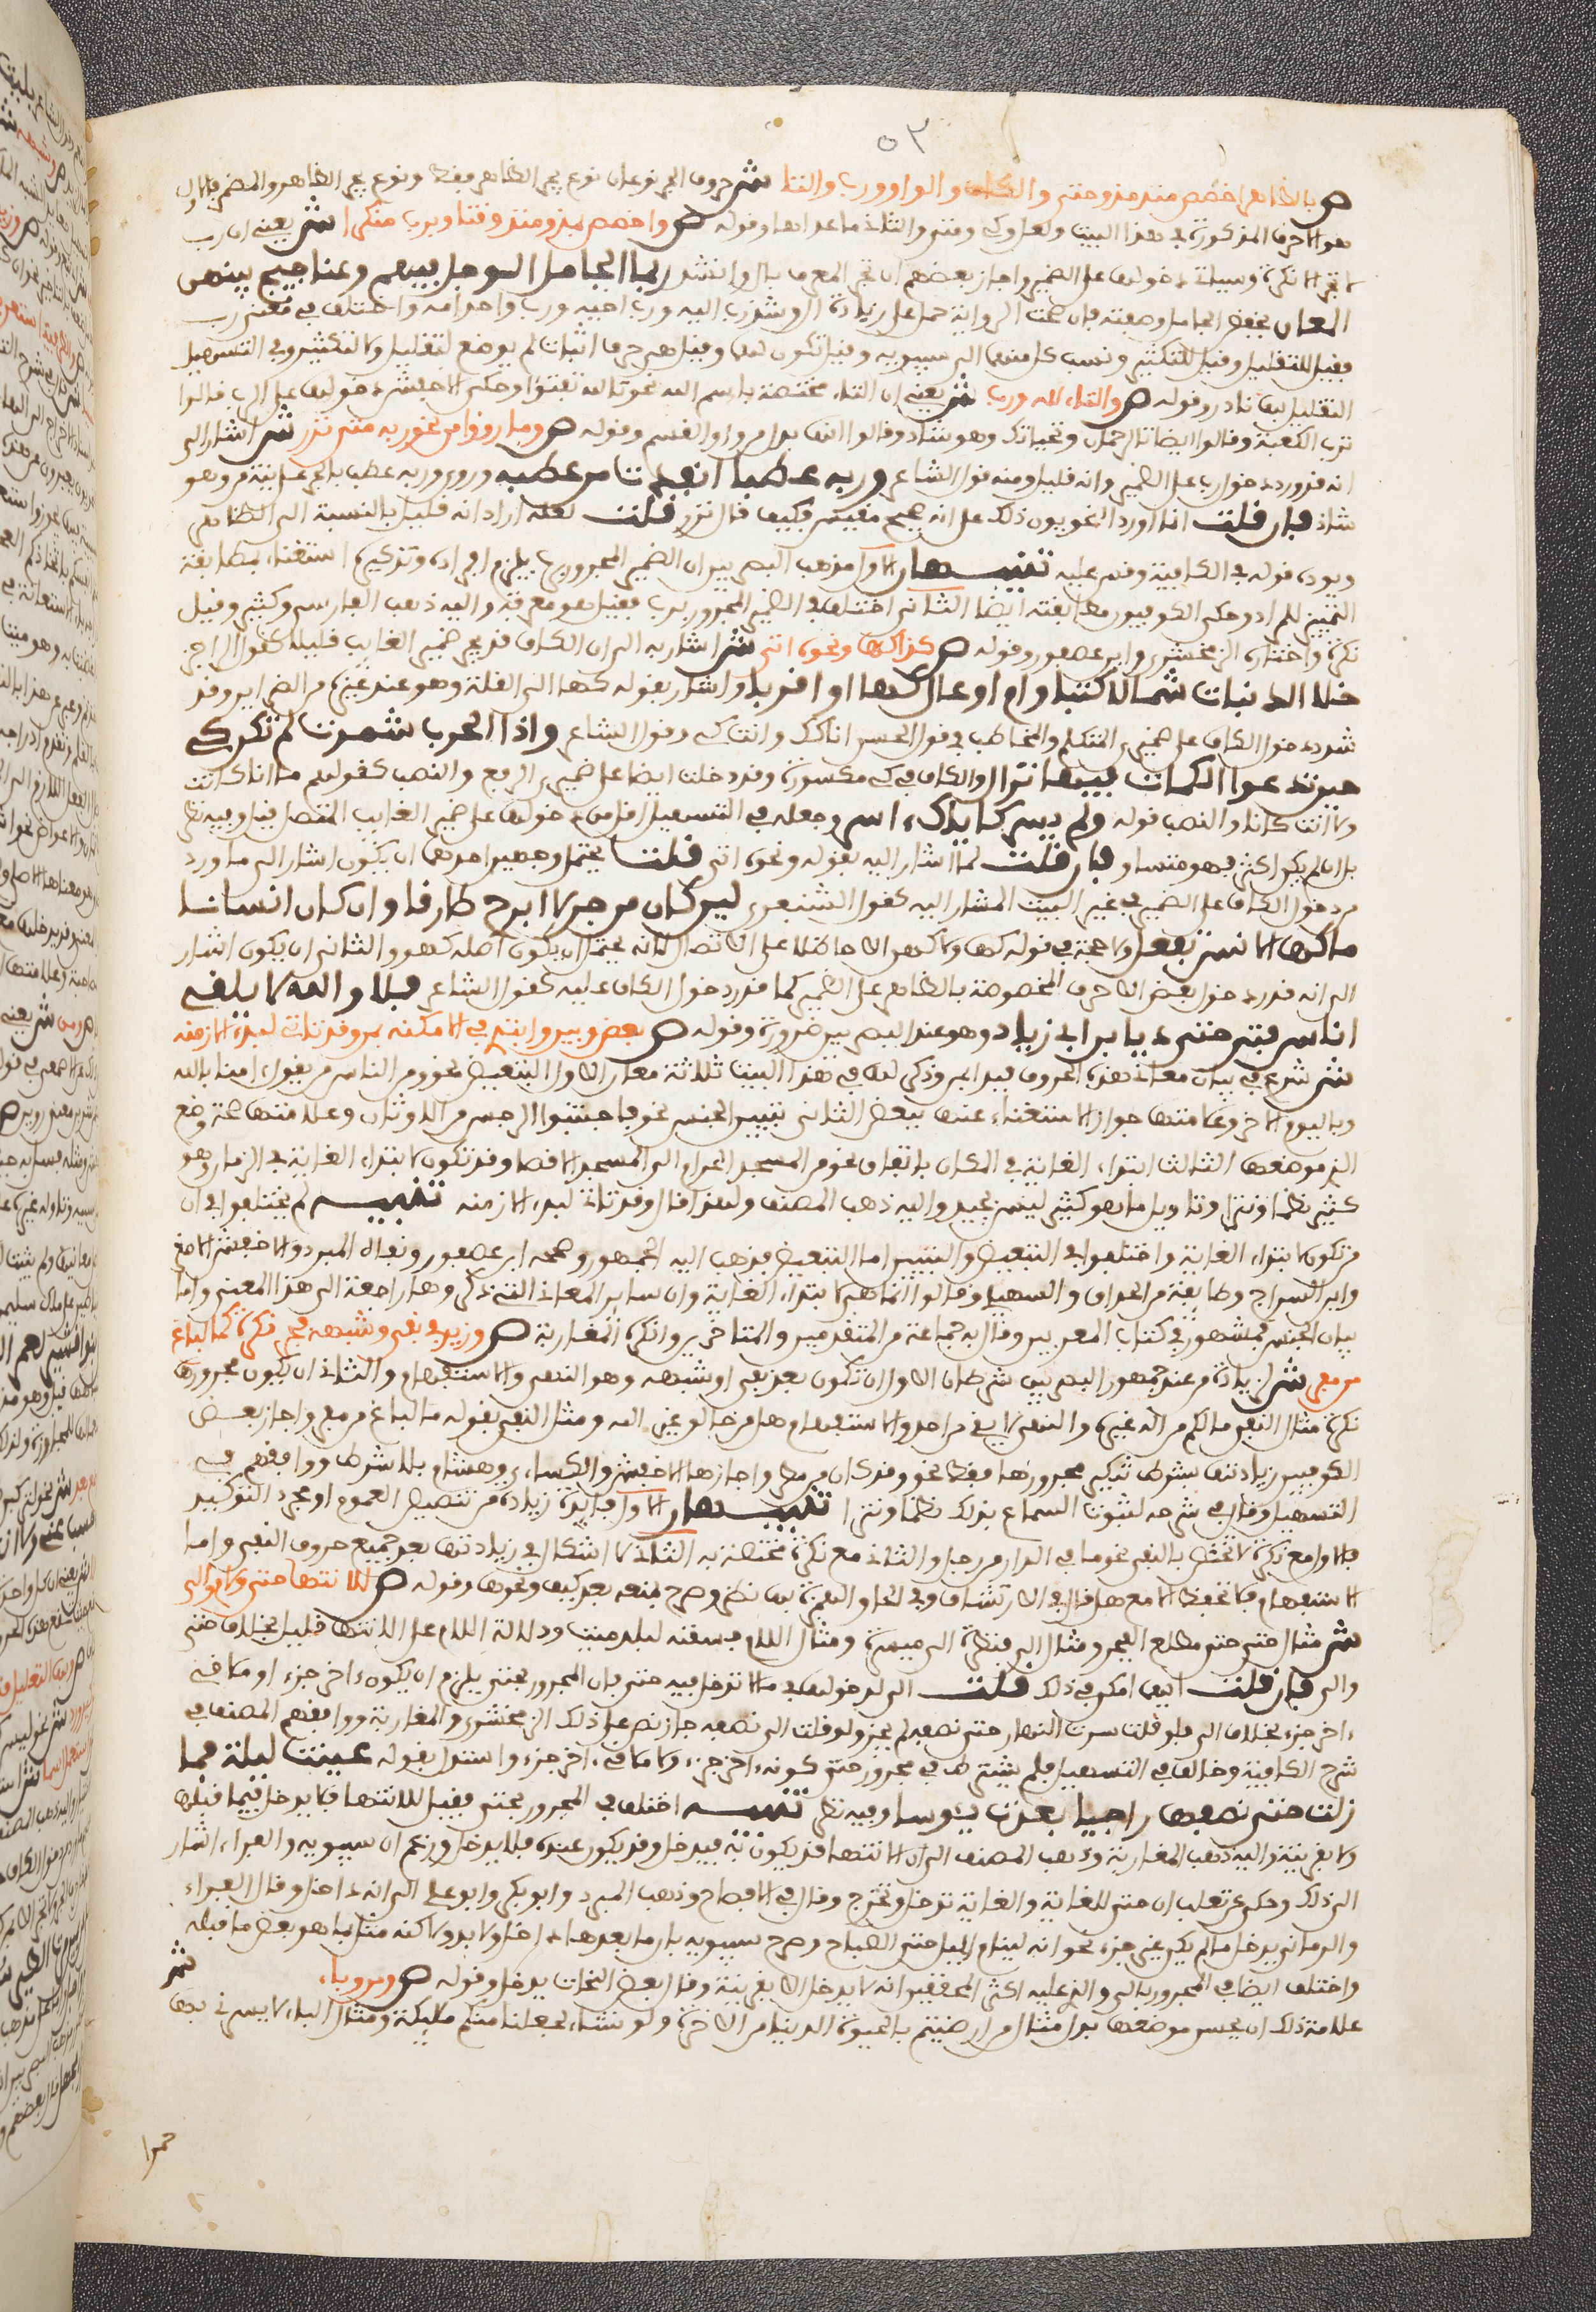 ٥٢
ص بالظاهر اخصص منذ مذ وحتى والكاف والواو ورب والتا ش حروف الجر نوعان نوع يجر الظاهر فقط ونوع يجر الظاهر والمضمر فالاول
هو الاحرف المذكورة في هذا البيت ولعل وكي ومتى والثاني ما عداها وقوله ص واخصص بمذ ومنذ وقتا وبرب منكرا ش يعني ان رب
لا تجر الا نكرة وسياتي دخولها على الضمير واجاز بعضهم ان تجر المعرف بال وانشد ربما الجامل المؤبل فيهم وعناجيج بينهن
المهار بخفض الجامل وصفته فان صحت الرواية حمل على زيادة ال وشذ رب ابيه ورب اخيه ورب واحد امه واختلف في معنى رب
فقيل للتقليل وقيل للتكثير ونسب كل منهما الى سيبويه وقيل تكون لهما وقيل هي حرف اثبات لم يوضع لتقليل ولا لتكثير وفي التسهيل
التقليل بها نادر وقوله ص والتاء لله ورب ش يعني ان التاء مختصة باسم الله نحو تالله تفتؤا وحكى الاخفش دخولها على الرب قالوا
ترب الكعبة وقالوا ايضا تالرحمان وتحياتك وهو شاذ وقالوا انها بدل من واو القسم وقوله ص وما رووا من نحو ربه فتى نزر ش اشار الى
انه قد ورد دخول رب على الضمير وانه قليل ومنه قول الشاعر وربه عطبا انقذت من عطبه وروي وربه عطب بالجر على نية من وهو
شاذ فان قلت انما اورد النحويون ذلك على انه فصيح مقيس فكيف قال نزر قلت لعله اراد انه قليل بالنسبة الى الظاهر
ويؤيده قوله في الكافية وقس عليه تنبيهان الاول مذهب البصريين ان الضمير المجرور برب يلزم افراده وتذكيره استغناء بمطابقة
التمييز للمراد وحكى الكوفيون مطابقته ايضا الثاني اختلف في الضمير المجرور برب فقيل هو معرفة واليه ذهب الفارسي وكثير وقيل
نكرة واختاره الزمخشري وابن عصفور وقوله ص كذا كها ونحوه اتى ش اشار به الى ان الكاف قد يجر ضمير الغايب قليلا كقول الراجز
خلا الذنابات شمالا كثبا وام اوعال كها او اقربا واشار بقوله كها الى القلة وهو عند غيره من الضراير وقد
شذ دخول الكاف على ضمير المتكلم والمخاطب في قول الحسن انا كك وانت كي وقول الشاعر واذا الحرب شمرت لم تكن كي
حين تدعوا الكمات فيها نزال والكاف في كي مكسورة وقد دخلت ايضا على ضمير الرفع والنصب كقولهم ما انا كانت
ولا انت كانا والنصب قوله ولم ياسر كاياك اسر وجعله في التسهيل اقل من دخولها على ضمير الغايب المتصل قيل وفيه نظر
بل ان لم يكن اكثر فهو متساو فان قلت لما اشار اليه بقوله ونحوه اتى قلت يحتمل وجهين احدهما ان يكون اشار الى ما ورد
من دخول الكاف على الضمير في غير البيت المشار اليه كقول الشنفرى لين كان من جن لا ابرح طارقا وان كان انسا
ما كها الانس تفعل ولا حجة في قوله كها ولا كهن الا حاظلا على الاتصال لانه يحتمل ان يكون اصله كهو والثاني ان يكون اشار
الى انه قد ورد دخول بعض الاحرف المخصوصة بالظاهر على الضمير كما قد ورد دخول الكاف عليه كقول الشاعر فلا والله لا يلفى
اناس فتى حتى يا بن ابي زياد وهو عند البصريين ضرورة وقوله ص بعض وبين وابتدئ في الامكنه بمن وقد تاتي لبدء الازمنه
ش شرع في بيان معاني هذه الحروف فبدا بمن وذكر لها في هذا البيت ثلاثة معان الاول التبعيض نحو ومن الناس من يقول امنا بالله
وباليوم الاخر وعلامتها جواز الاستغناء عنها ببعض الثاني تبيين الجنس نحو فاجتنبوا الرجس من الاوثان وعلامتها صحة وضع
الذي موضعها الثالث ابتداء الغاية في المكان باتفاق نحو من المسجد الحرام الى المسجد الاقصا وقد تكون لابتداء الغاية في الزمان وهو
كثير نظما ونثرا وتاويل ما هو كثير ليس بجيد واليه ذهب المصنف ولهذا قال وقد تاتي لبدء الازمنه تنبيه لم يختلفوا في ان
من تكون لابتداء الغاية واختلفوا في التبعيض والتبيين اما التبعيض فذهب اليه الجمهور وصححه ابن عصفور ونفاه المبرد والاخفش الاصغر
وابن السراج وطايفة من الحذاق والسهيلي وقالوا انما هي لابتداء الغاية وان ساير المعاني التي ذكروها راجعة الى هذا المعنى واما
بيان الجنس فمشهور في كتاب المعربين وقال به جماعة من المتقدمين والمتاخرين وانكره المغاربة ص وزيد في نفي وشبهه فجر نكرة كما لباغ
من مفر ش لزيادة من عند جمهور البصريين شرطان الاول ان تكون بعد نفي او شبهه وهو النهي والاستفهام والثاني ان يكون مجرورها
نكرة مثال النفي ما لكم من اله غيره والنهي لا يقم من احد والاستفهام هل من خالق غير الله ومثل النفي بقوله ما لباغ من مفر واجاز بعض
الكوفيين زيادتها بشرط تنكير مجرورها فقط نحو قد كان من مطر واجازها الاخفش والكسائي وهشام بلا شرط ووافقهم في
التسهيل وقال في شرحه لثبوت السماع بذلك نظما ونثرا تنبيهان الاول فايدة زيادة من تنصيص العموم او مجرد التوكيد
فالاول مع نكرة لا تختص بالنفي نحو ما في الدار من رجل والثاني مع نكرة مختصة به الثاني لا اشكال في زيادتها بعد جميع حروف النفي واما
الاستفهام فلا تحفظ الا مع هل قال في الارتشاف وفي الحاق الهمزة بها نظر وصرح بمنعه بعد كيف ونحوها وقوله ص للانتها حتى ولام والى
ش مثال حتى حتى مطلع الفجر ومثال الى فنظرة الى ميسرة ومثال اللام فسقناه لبلد ميت ودلالة اللام على الانتها قليل بخلاف حتى
والى فان قلت ايهما امكن في ذلك قلت الى لدخولها فيما لا تدخل فيه حتى فان المجرور بحتى يلزم ان يكون اخر جزء او ملاقي
اخر جزء بخلاف الى فلو قلت سرت النهار حتى نصفه لم يجز ولو قلت الى نصفه جاز نص على ذلك الزمخشري والمغاربة ووافقهم المصنف في
شرح الكافية وخالف في التسهيل فلم يشترط في مجرور حتى كونه اخر جزء ولا ملاقي اخر جزء واستدل بقوله عينت ليلة فما
زلت حتى نصفها راجيا بعدت يئوسا وفيه نظر تنبيه اختلف في المجرور بحتى فقيل للانتها فلا يدخل فيما قبلها
ولا بقرينة واليه ذهب المغاربة وذهب المصنف الى ان الانتها قد يكون به فيدخل وقد يكون عنده فلا يدخل وزعم ان سيبويه والفراء اشار
الى ذلك وحكي عن ثعلب ان حتى للغاية والغاية تدخل وتخرج وقال في الافصاح وذهب المبرد وابو بكر وابو علي الى انه داخل وقال الفراء
والرماني يدخل ما لم يكن غير جزء نحو انه لينام الليل حتى الصباح وصرح سيبويه بان ما بعدها داخل ولا بد ولاكنه مثل بما هو بعض ما قبله
واختلف ايضا في المجرور بالى والذي عليه اكثر المحققين انه لا يدخل الا بقرينة وقال بعض النحات يدخل وقوله ص ومن وباء ش
علامة ذلك ان يحسن موضعها بدل مثال من ارضيتم بالحيوة الدنيا من الاخرة ولو نشاء لجعلنا منكم ملئكة ومثال الباء لا يسرني بها
حمرا